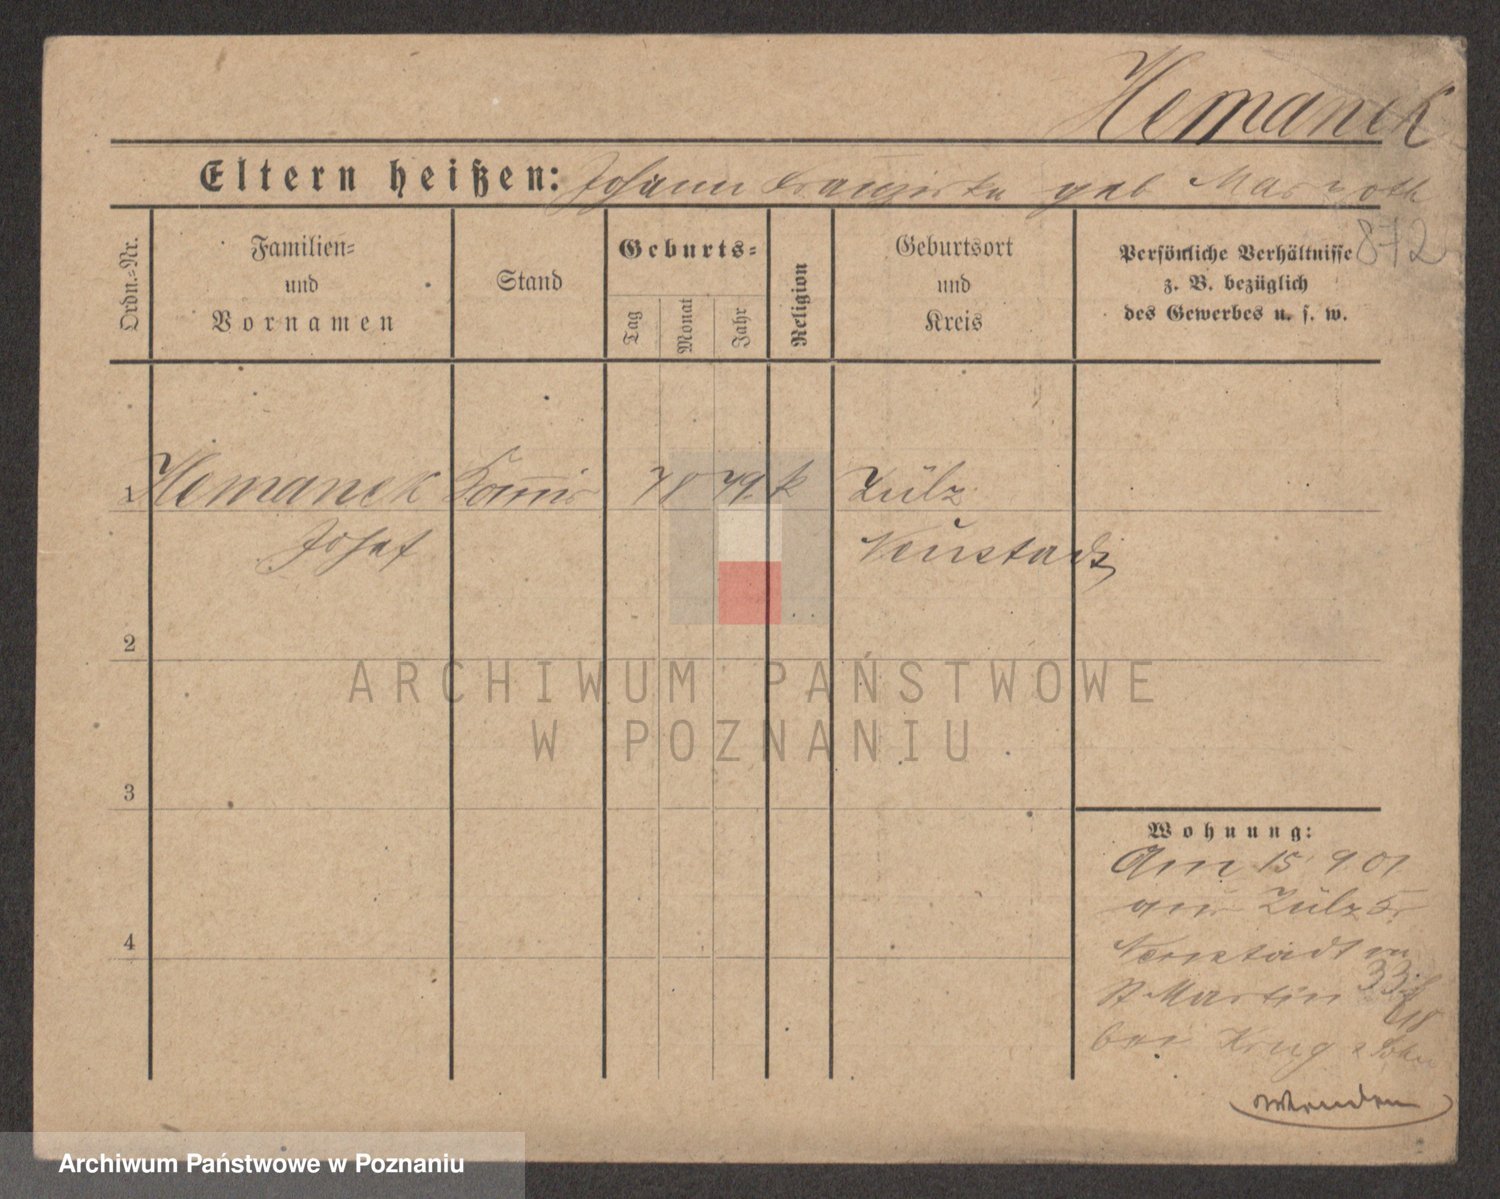 Hemanek
Eltern heißen: Johann Franziska geb Marzoth
872
Ordn.-Nr.
Familien-
und
Vornamen
Stand
Geburts-
Tag
Monat
Jahr
Religion
Geburtsort
und
Kreis
Persönliche Verhältnisse
z. B. bezüglich
des Gewerbes u. s. w.
1 Hemanek Kommis 79 k Zülz
Josef Neustadt
2
3
4
Wohnung:
Am 15 9 01
aus Zülz Kr
Neustadt
St Martin 33
bei Krug & Sohn
Wenden
ARCHIWUM PAŃSTWOWE
W POZNANIU
Archiwum Państwowe w Poznaniu